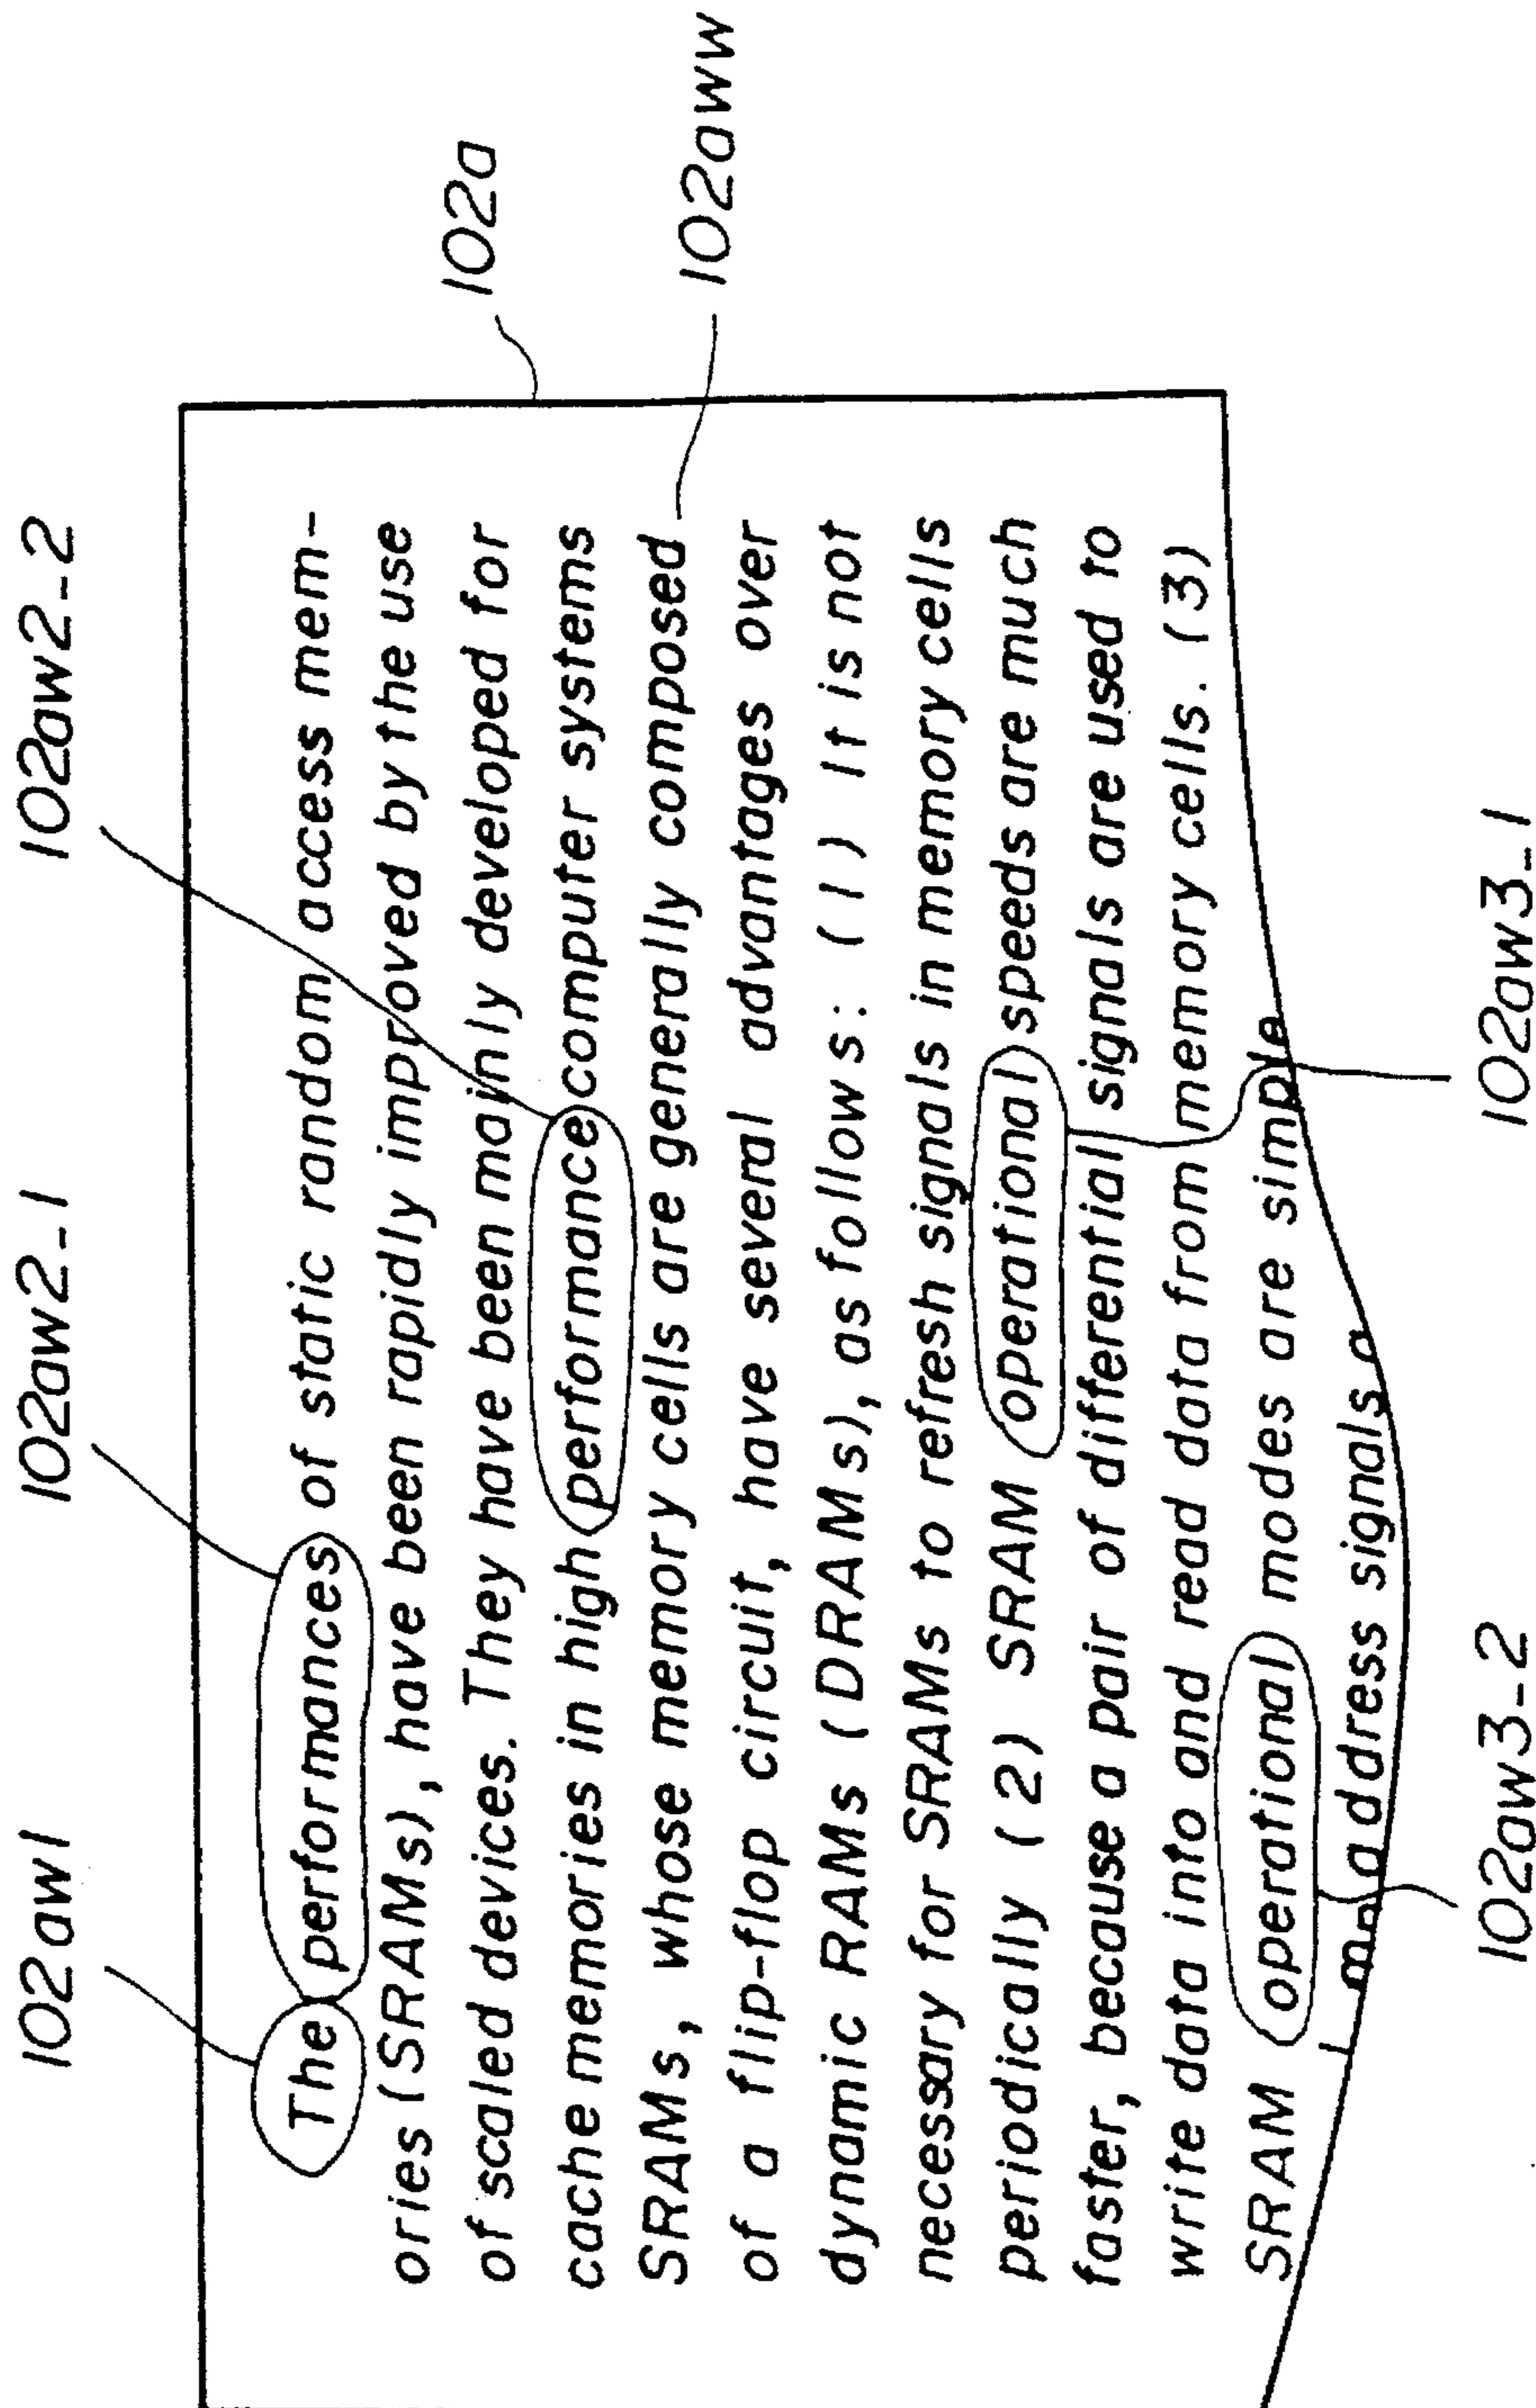 102aw1
102aw2-1
102aw2-2
102a
102aww
The performances of static random access mem-
ories (SRAMs), have been rapidly improved by the use
of scaled devices. They have been mainly developed for
cache memories in high performance computer systems
SRAMs, whose memory cells are generally composed
of a flip-flop circuit, have several advantages over
dynamic RAMs (DRAMs), as follows: (1) It is not
necessary for SRAMs to refresh signals in memory cells
periodically (2) SRAM operational speeds are much
faster, because a pair of differential signals are used to
write data into and read data from memory cells. (3)
SRAM operational modes are simple
address signals
102aw3-2
102aw3-1